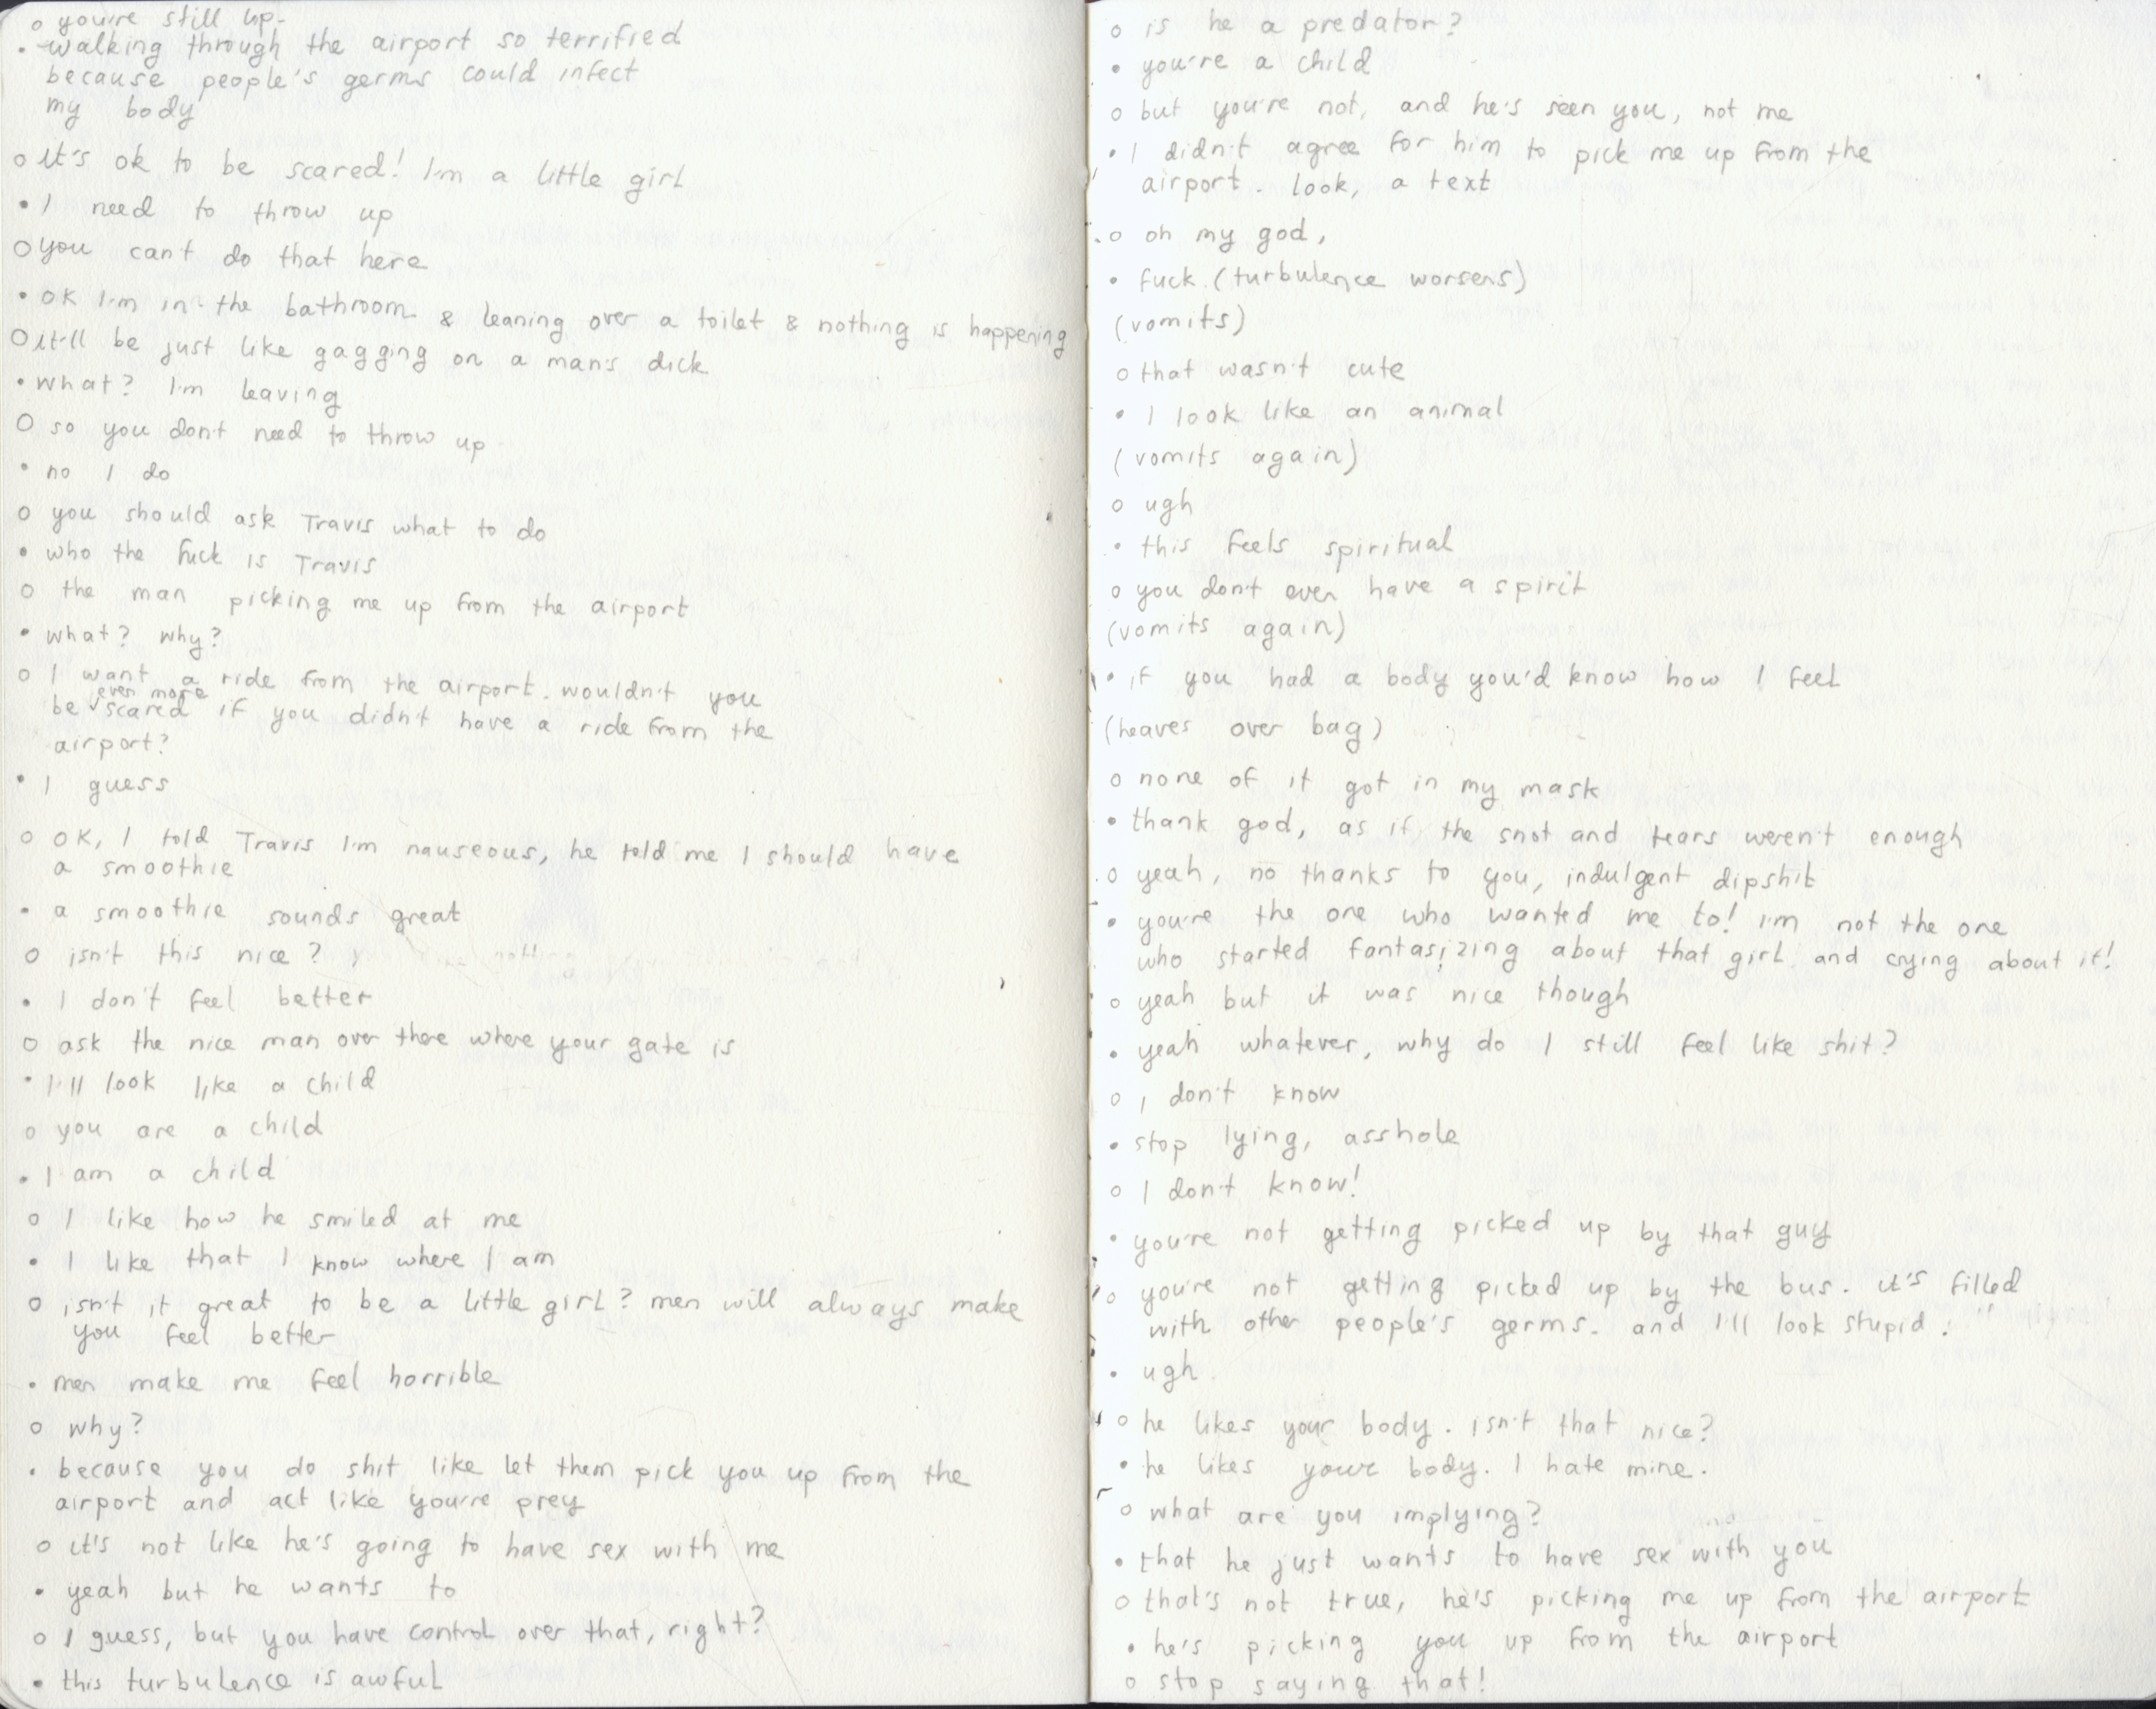 o you're still up.
• walking through the airport so terrified
because people's germs could infect
my body
o it's ok to be scared! I'm a little girl
• I need to throw up
o you can't do that here
• ok I'm in the bathroom & leaning over a toilet & nothing is happening
o it'll be just like gagging on a man's dick
• what? I'm leaving
o so you don't need to throw up
• no I do
o you should ask Travis what to do
• who the fuck is Travis
o the man picking me up from the airport
• what? why?
o I want a ride from the airport. wouldn't you
be even more scared if you didn't have a ride from the
airport?
• I guess
o OK, I told Travis I'm nauseous, he told me I should have
a smoothie
• a smoothie sounds great
o isn't this nice?
• I don't feel better
o ask the nice man over there where your gate is
• I'll look like a child
o you are a child
• I am a child
o I like how he smiled at me
• I like that I know where I am
o isn't it great to be a little girl? men will always make
you feel better
• men make me feel horrible
o why?
• because you do shit like let them pick you up from the
airport and act like you're prey
o it's not like he's going to have sex with me
• yeah but he wants to
o I guess, but you have control over that, right?
• this turbulence is awful
o is he a predator?
• you're a child
o but you're not, and he's seen you, not me
• I didn't agree for him to pick me up from the
airport. look, a text
o oh my god,
• fuck. (turbulence worsens)
(vomits)
o that wasn't cute
• I look like an animal
(vomits again)
o ugh
• this feels spiritual
o you don't even have a spirit
(vomits again)
• if you had a body you'd know how I feel
(heaves over bag)
o none of it got in my mask
• thank god, as if the snot and tears weren't enough
o yeah, no thanks to you, indulgent dipshit
• you're the one who wanted me to! I'm not the one
who started fantasizing about that girl and crying about it!
o yeah but it was nice though
• yeah whatever, why do I still feel like shit?
o I don't know
• stop lying, asshole
o I don't know!
• you're not getting picked up by that guy
o you're not getting picked up by the bus. it's filled
with other people's germs. and I'll look stupid.
• ugh.
o he likes your body. isn't that nice?
• he likes your body. I hate mine.
o what are you implying?
• that he just wants to have sex with you
o that's not true, he's picking me up from the airport
• he's picking you up from the airport
o stop saying that!